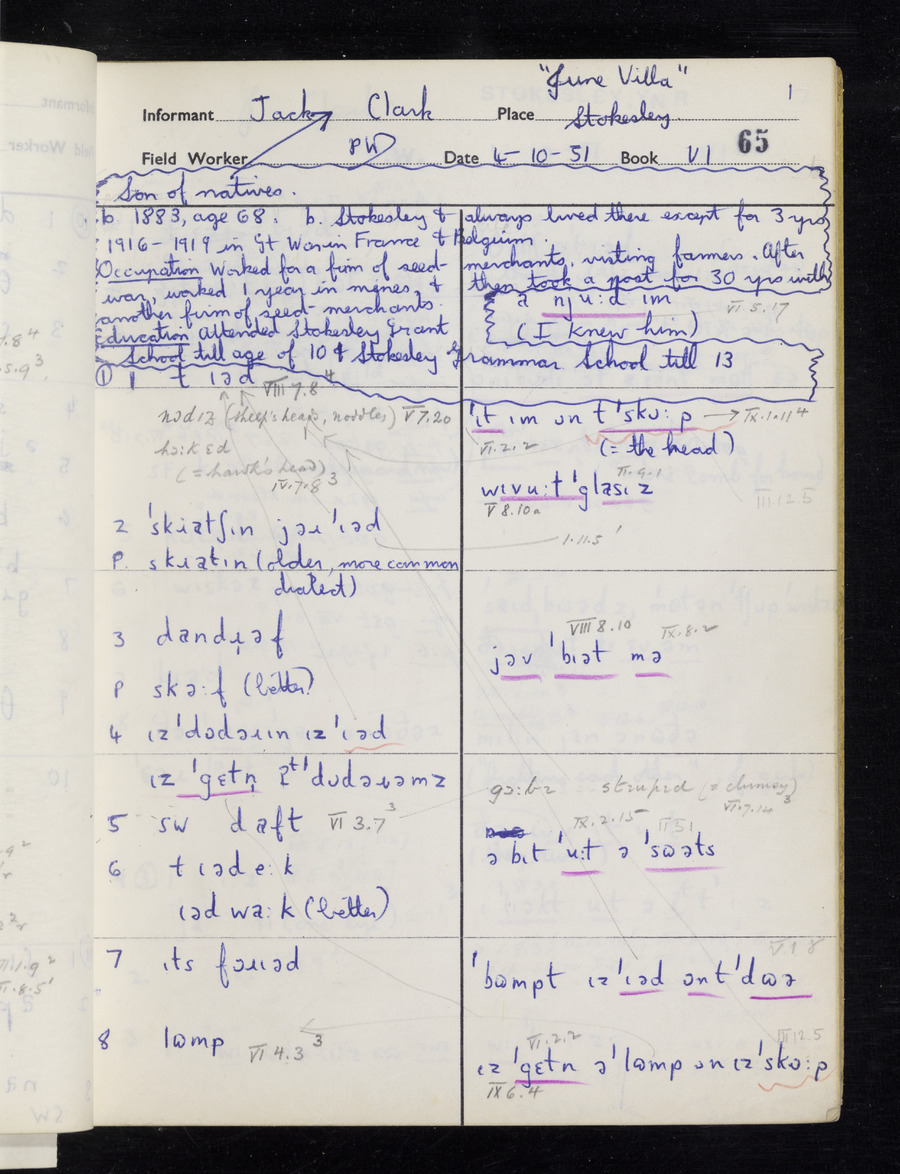 "June Villa"
1
Informant Jack Clark Place Stokesley
Field Worker PW Date 4-10-51 Book VI 65
Son of natives.
b. 1883, age 68. b. Stokesley & always lived there except for 3 yrs
1916-1919 in Gt War in France & Belgium
Occupation Worked for a firm of seed-
merchants, visiting farmers. After
war, worked 1 year in mines, &
then took a post for 30 yrs with
another firm of seed-merchants.
Education Attended Stokesley Grant
School till age of 10 & Stokesley Grammar School till 13
a nju:d im VI.5.17
(I knew him)
① 1 t ɪəd VIII 7.8⁴
nɒdɪz (sheep's heads, noddles) V 7.20
hɔ:k ɛd
(= hawk's head)
IV.7.8³
'ɪt ɪm ɒn t'skɒ:p → IX.1.11⁴
VI.2.2 (= the head)
II.9.1
wɪvu:t 'glasɪz
V 8.10a III.12.5
2 'skɹatʃɪn jəɹ 'ɪəd
1.11.5'
P. skɹatɪn (older, more common
dialect)
3 dandɹəf
VIII 8.10 IX.8.2
jəv 'bɪət mə
P skə:f (better)
4 ɪz 'dɒdəɹɪn ɪz 'ɪəd
ɪz 'gɛtn̩ ʔt' 'dɒdəɹəmz
gɔ:bɪ stɪupɪd (= clumsy)
VI.7.14³
5 sw daft VI 3.7³
IX.2.15 II 51
ə bɪt 'u:t ə 'sɷəts
6 t ɪəd e:k
ɪəd wa:k (better)
7 ɪts fɔɹɪəd
V.1 8
'bɷmpt ɪz 'ɪəd ɒnt 'dɷə
8 lɷmp VI 4.3³
VI.2.2 III 12.5
ɪz 'gɛtn ə 'lɷmp ɒn ɪz 'skɒ:p
IX 6.4